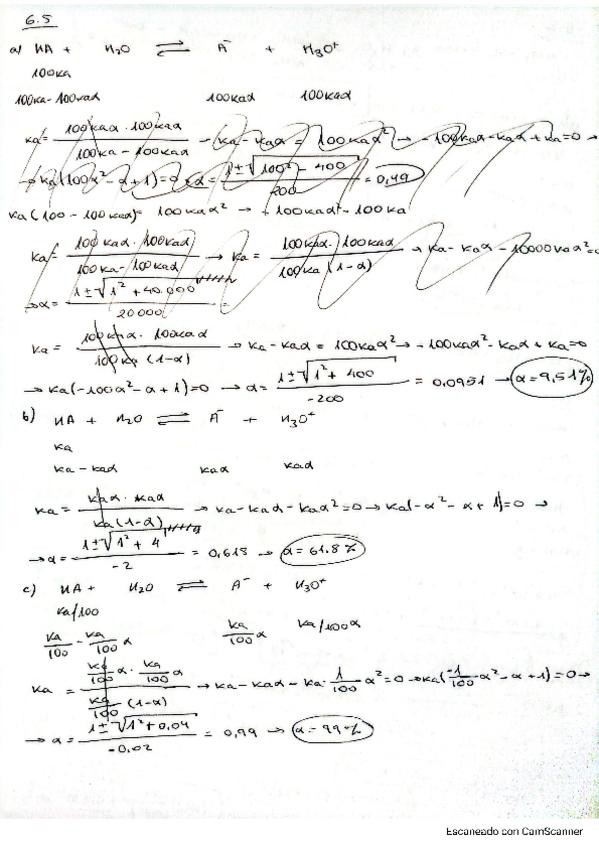 6.5
a) HA + H₂O ⇌ A⁻ + H₃O⁺
100ka
100ka - 100kaα 100kaα 100kaα
ka = 100kaα · 100kaα / 100ka - 100kaα → ka - kaα = 100kaα² → -100kaα - kaα + ka = 0 →
→ ka(100α² - α + 1) = 0 α = 1 ± √100² - 400 / 200 = 0,49
ka(100 - 100kaα) = 100kaα² → + 100kaα² - 100ka
ka = 100kaα · 100kaα / 100ka - 100kaα → ka = 100kaα · 100kaα / 100ka (1-α) → ka - kaα - 10000kaα² = 0
→ α = 1 ± √1² + 40.000 / 20000 =
ka = 100kaα · 100kaα / 100ka (1-α) → ka - kaα = 100kaα² → -100kaα² - kaα + ka = 0
→ ka(-100α² - α + 1) = 0 → α = 1 ± √1² + 400 / -200 = 0,0951 → α = 9,51%
b) HA + H₂O ⇌ A⁻ + H₃O⁺
ka
ka - kaα kaα kaα
ka = kaα · kaα / ka(1-α) → ka - kaα - kaα² = 0 → ka(-α² - α + 1) = 0 →
→ α = 1 ± √1² + 4 / -2 = 0,618 → α = 61.8%
c) HA + H₂O ⇌ A⁻ + H₃O⁺
ka/100
ka/100 - ka/100 α ka/100 α ka/100α
ka = ka/100 α · ka/100 α / ka/100 (1-α) → ka - kaα - ka · 1/100 α² = 0 → ka(-1/100 α² - α + 1) = 0 →
→ α = 1 ± √1² + 0,04 / -0,02 = 0,99 → α = 99%
Escaneado con CamScanner